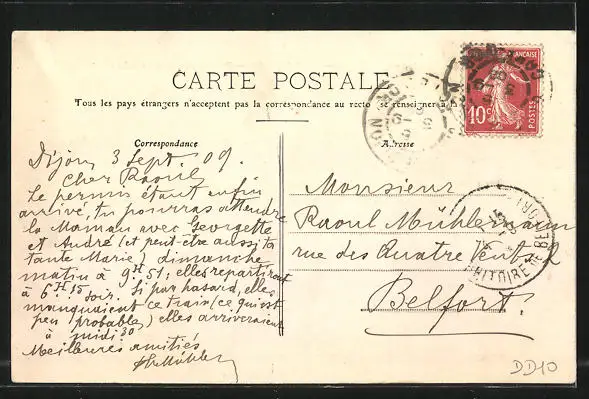 CARTE POSTALE
Tous les pays étrangers n'acceptent pas la correspondance au recto (se renseigner à la
Correspondance
Adresse
Dijon, 3 Sept. 09.
Cher Raoul,
Le permis étant enfin
arrivé, tu pourras attendre
la Maman avec Georgette
et André (et peut-être aussi ta
tante Marie) dimanche
matin à 9H 51; elles repartiront
à 6H 15 soir. Si par hasard, elles
manquaient ce train (ce qui est
peu probable) elles arriveraient
à midi 30
Meilleures amitiés
Monsieur
Raoul Mühlemann
rue des Quatre Vents, 2
Belfort.
FRANÇAISE
10c
POSTES
BELFORT
TERRITOIRE DE BELFORT
DD10